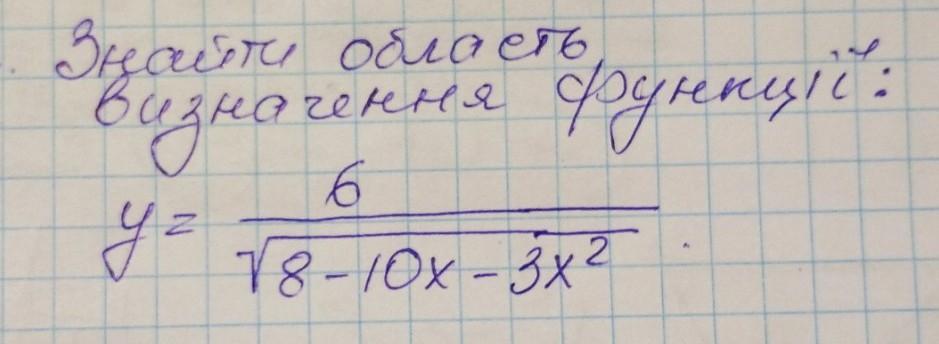 Знайти область
визначення функції:
y = 6 / √(8 - 10x - 3x²).